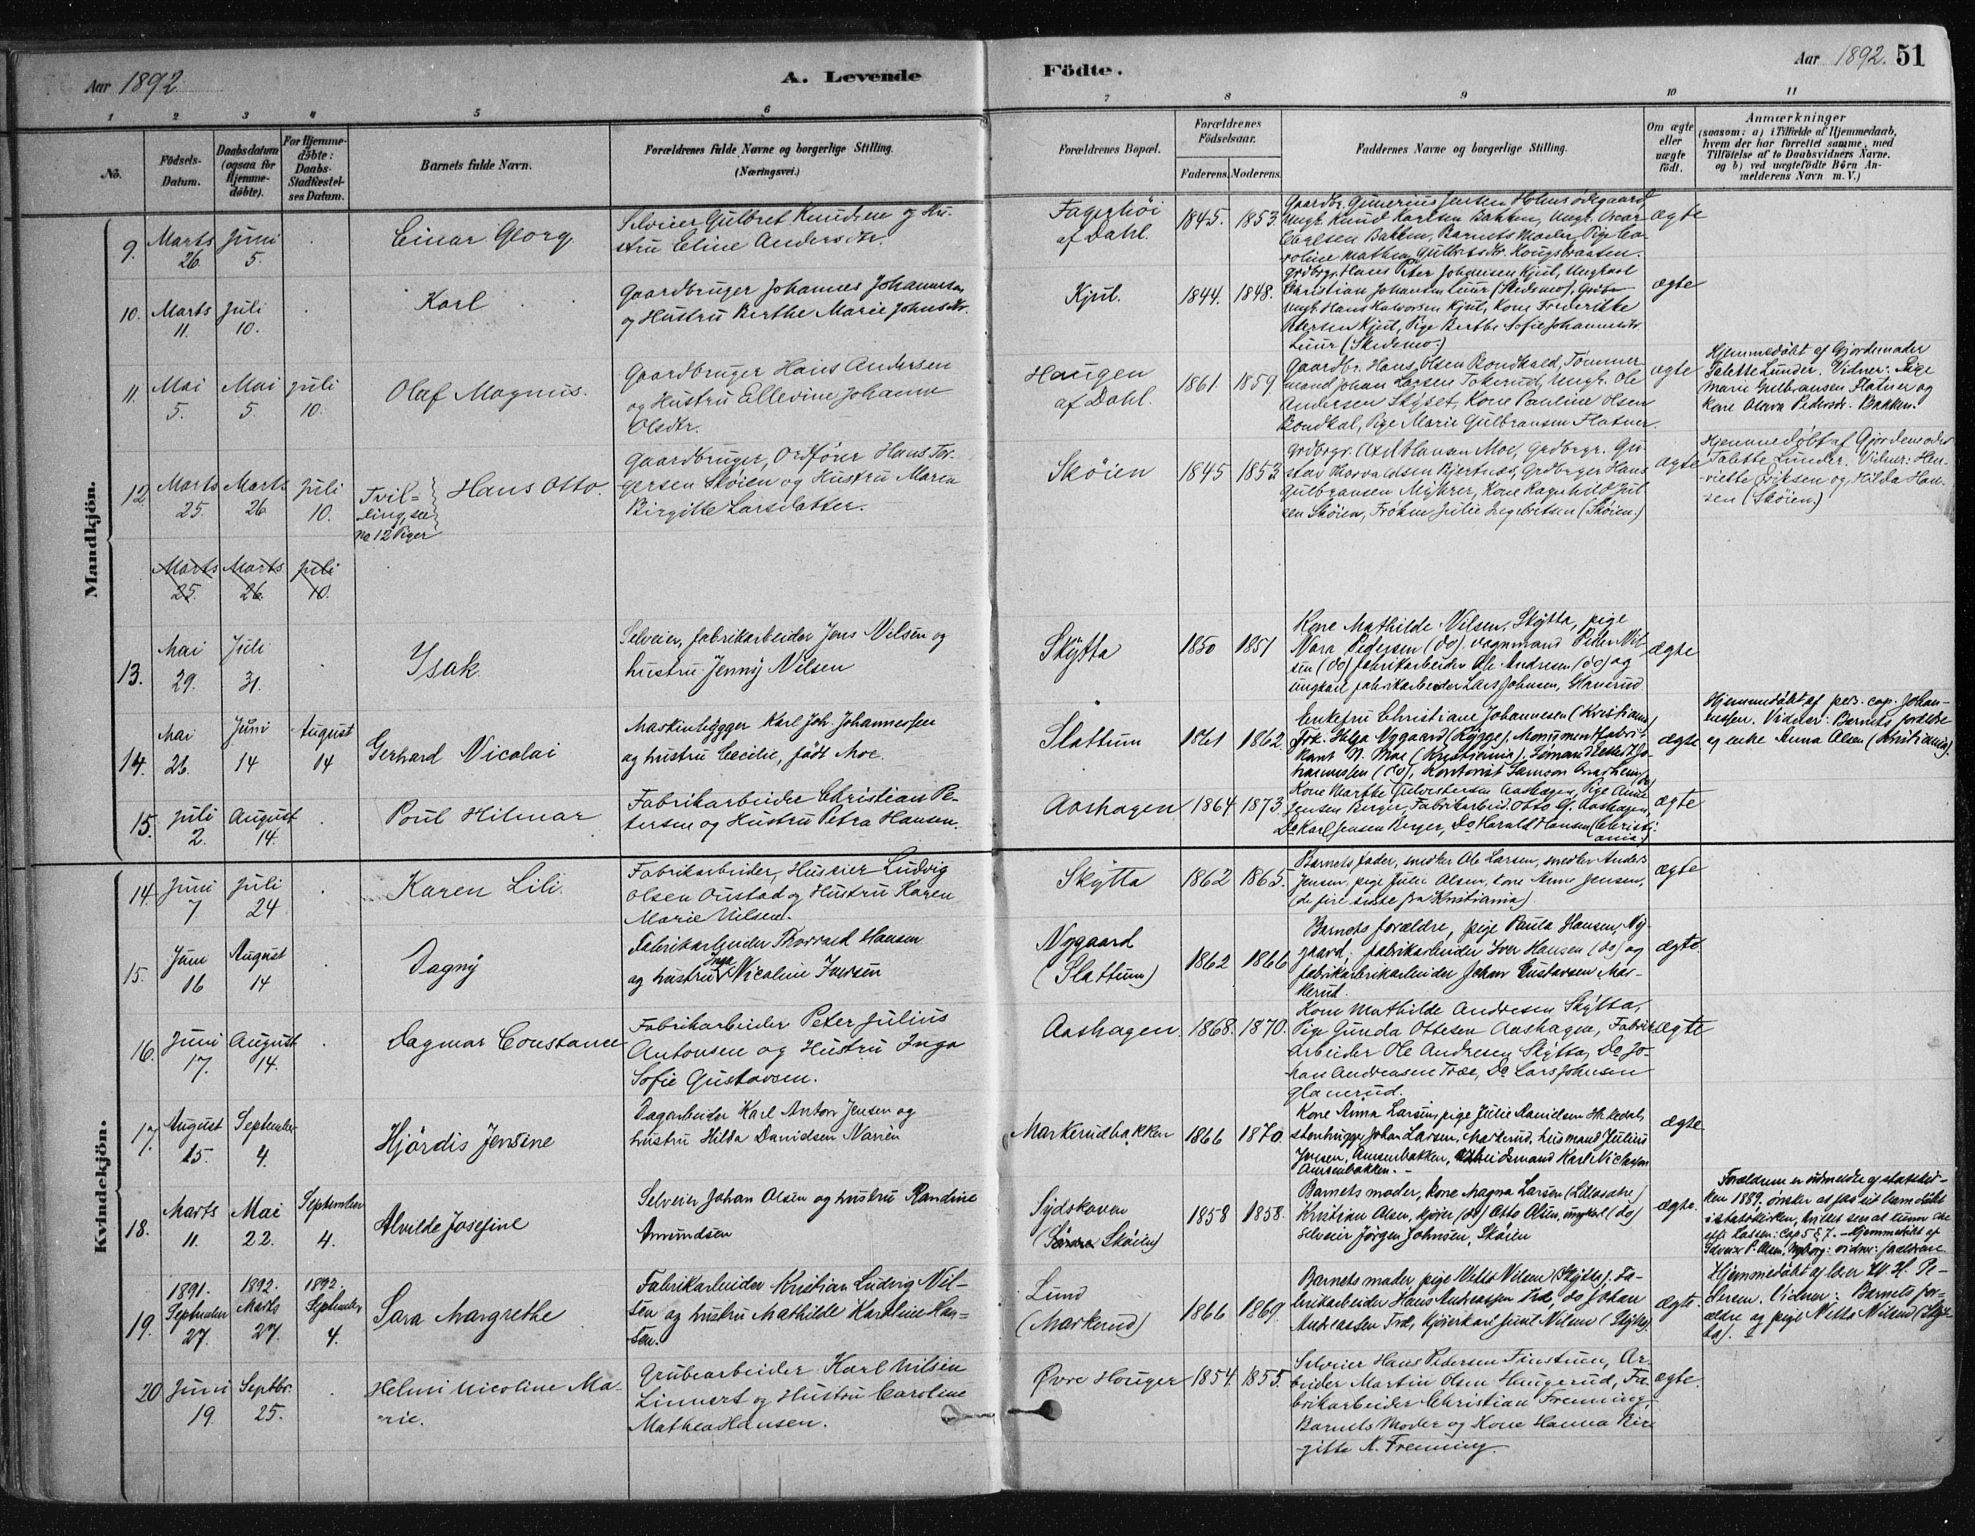 Aar 1892
A. Levende
Födte.
Aar 1892. 51
1 2 3 4 5 6 7 8 9 10 11
No.
Födsels-
Datum.
Daabsdatum
(ogsaa for
Hjemme-
døbte).
For Hjemme-
döbte:
Daabs-
Stadfæstel-
ses Datum.
Barnets fulde Navn.
Forældrenes fulde Navne og borgerlige Stilling.
(Næringsvei.)
Forældrenes Bopæl.
Forældrenes
Födselsaar.
Faderens. Moderens.
Faddernes Navne og borgerlige Stilling.
Om ægte
eller
uægte
födt.
Anmærkninger
(saasom: a) i Tilfælde af Hjemmedaab,
hvem der har forrettet samme, med
Tilföielse af to Daabsvidners Navne.
og b) ved uægtefödte Börn An-
melderens Navn m. V.)
Mandkjön.
9. Marts 26. Juni 5. Einar Georg
Selveier Gulbret Knudsen og Hu-
stru Eline Andersdtr.
Fagerhöi
af Dahl.
1845. 1853.
Gaardbr. Gunerius Jensen Holmsødegaard
Ungk. Knud Karlsen Bakken, Ungk. Oscar
Carlsen Bakken, Barnets Moder, Pige Ca-
roline Mathea Gulbrdsdtr. Kongsbraaten.
ægte
10. Marts 11. Juli 10. Karl
Gaardbruger Johannes Johannesen
og Hustru Berthe Marie Johnsdtr.
Kjul.
1844. 1848.
Grdbrgr. Hans Peter Johansen Kjul, Ungkarl
Christian Johansen Luur (Skedsmo),
Ungk. Hans Halvorsen Kjul, Kone Frederikke
Petersen Kjul, Pige Berthe Sofie Johannesdtr.
Luur (Skedsmo.)
ægte
11. Mai 5. Mai 5 Juli 10. Olaf Magnus.
Gaardbruger Hans Andersen
og Hustru Ellevine Johanne
Olsdtr.
Haugen
af Dahl.
1861. 1859.
Gaardbr. Hans Olsen Rondkald, Tømmer
mand Johan Larsen Tokerud, Ungk. Ole
Andersen Skyset, Kone Pauline Olsen
Rondkal, Pige Marie Gulbransen Flatner.
ægte
Hjemmedöbt af Gjordemoder
Talette Lunder. Vidner: Pige
Marie Gulbransen Flatner og
Kone Oleva Pedersdr. Bakken.
12. Marts 25. Marts 26 Juli 10. Tvil-
ling se
No 12 Piger
Hans Otto.
Gaardbruger, Ordfører Hans Tor-
gersen Skøien og Hustru Maren
Birgitte Larsdatter.
Skøien
1845 1853
Grdbrgr. Axel Hansen Moe, Grdbrgr. Gu-
stav Thorvaldsen Kjertnæs, Grdbrger Hans
Gulbransen Myhrer, Kone Ragnhild Jul
sen Skøien, Frøken Julie Ingebretsen (Skøien.)
ægte
Hjemmedöbt af Gjordemoder
Talette Lunder. Vidner: Hen-
riette Eriksen og Hilda Han-
sen (Skøien)
Marts 25. Marts 26. Juli 10.
13. Mai 29. Juli 31. Ysak
Selveier, fabrikarbeider Jens Nilsen og
hustru Jenny Nilsen
Skytta
1850 1851
Kone Mathilde Nilsen, Skytta, pige
Nora Pedersen (do). dagmand Peder Nil-
sen (do) fabrikarbeider Ole Andresen (do) og
ungkarl fabrikarbeider Lars Johnsen, Glanerud
ægte
14. Mai 26. Juni 14 August 14 Gerhard Nicolai
Maskinbygger Karl Joh. Johannessen
og hustru Cecilie, født Moe.
Slattum
1861 1862
Enkefru Christiane Johannesen (Kristiania)
Frk. Helga Nygaard (Rygge), Monumentfabri-
kant N. Moe (Kristiania). Sømand Jo-
hannessen (do), Kontorist Samson
ægte
Hjemmedöbt af pers. cap. Johan-
nessen. Vidner: Barnets forældre
og enke Anna Olsen (Kristiania).
15. Juli 2. August 14. Poul Hilmar
Fabrikarbeider Christian Pe-
tersen og Hustru Petra Hansen.
Aashagen
1864 1873.
Kone Marthe Gulbretsen Aashagen, Pige Anne
Jensen Berger, Fabrikarbeid. Otto G. Aashagen,
Do Karl Jensen Berger, Do Harald Hansen (Christi-
ania)
ægte
Kvindekjön.
14. Juni 7 Juli 24 Karen Lili.
Fabrikarbeider, Huseier Ludvig
Olsen Onstad og Hustru Karen
Marie Nilsen.
Skytta
1862 1865.
Barnets fader, smedsv. Ole Larsen, smedsv. Anders
Jensen, pige Julie Olsen, kone Anne Jensen,
(de fire sidste fra Kristiania)
ægte
15. Juni 16 August 14 Dagny
Fabrikarbeider Thorvald Hansen
og hustru Inga Nicoline Iversen
Nygaard
(Slattum)
1862 1866
Barnets forældre, pige Paula Hansen, Ny-
gaard, fabrikarbeider Iver Hansen (do) og
fabrikarbeider Johan Gustavsen Mar-
kerud.
ægte.
16. Juni 17. August 14. Dagmar Constance
Fabrikarbeider Peter Julius
Antonsen og Hustru Inga
Sofie Gustavsen.
Aashagen.
1868. 1870.
Kone Mathilde Andresen Skytta,
Pige Gunda Ottesen Aashagen, Fabrik-
arbeider Ole Andresen Skytta, Do Jo-
han Andreasen Træe, Do Lars Johnsen
Glanerud.
ægte
17. August 15. September 4. Hjördis Jensine
Dagarbeider Karl Anton Jensen og
hustru Hilda Davidsen Narien
Markerudbakken
1866 1870.
Kone Anna Larsen, pige Julie Danielsen Hakedal,
stenhugger Johan Larsen, Markerud, husmand Julius
Jensen, Amsenbakken, Arbeidsmand Karl Niclassen
Amsenbakken. -
ægte
18. Marts 11. Mai 22. September 4. Alvilde Josefine
Selveier Johan Olsen og hustru Randine
Amundsen
Sydskoven
(Søndre Skøien)
1858 1858.
Barnets moder, kone Magna Larsen (Lillesætre)
Kristian Olsen, kjører (do) Otto Olsen, ungkarl (do)
selveier Jörgen Johnsen, Skøien
ægte.
Forældrene er udmeldte af statskir-
ken 1889, ønsker at faa sit barn døbt
i statskirken, hvilket sen at kunne ske
efter Loven: cap 5 § 7. - Hjemmedöbt af
Selveier P. Olsen, Nyborg: vidner: forældrene
19. 1891. September 27. 1892. Marts 27. 1892. September 4. Sara Margrethe
Fabrikarbeider Kristian Ludvig Nil-
sen og hustru Mathilde Karoline Han-
sen.
Lund
(Markerud)
1866 1869.
Barnets moder, pige Netta Nilsen (Skytta), Fa-
brikarbeider Hans Andreassen Træ, do Johan
Andreassen Træ, kjørerkarl Juul Nilsen (Skytta).
ægte.
Hjemmedöbt af lærer W. H. Pe-
tersen. Vidner: Barnets for-
ældre og pige Netta Nilsen (Skyt-
ta).
20 Juni 19. Septbr. 25. Helmi Nicoline Ma-
rie.
Grubearbeider Karl Nilsen
Linnert og Hustru Caroline
Mathea Hansen.
Øvre Hauger
1854. 1855.
Selveier Hans Pedersen Tinstuen, Ar-
beider Martin Olsen Haugerud, Fa-
brikarbeider Christian Frenning,
Barnets Moder og Kone Hanna Bir-
gitte N. Frenning.
ægte.